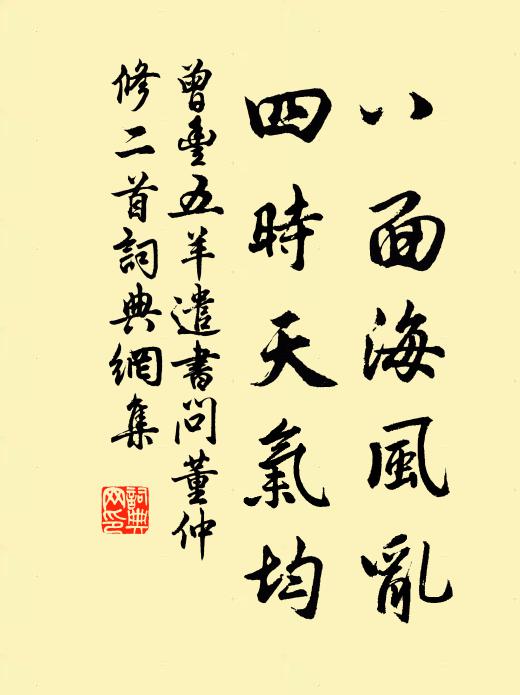 八面海風亂
四時天氣均
曾豐五羊遣書問董仲
修二首詞典網集
詞典網印